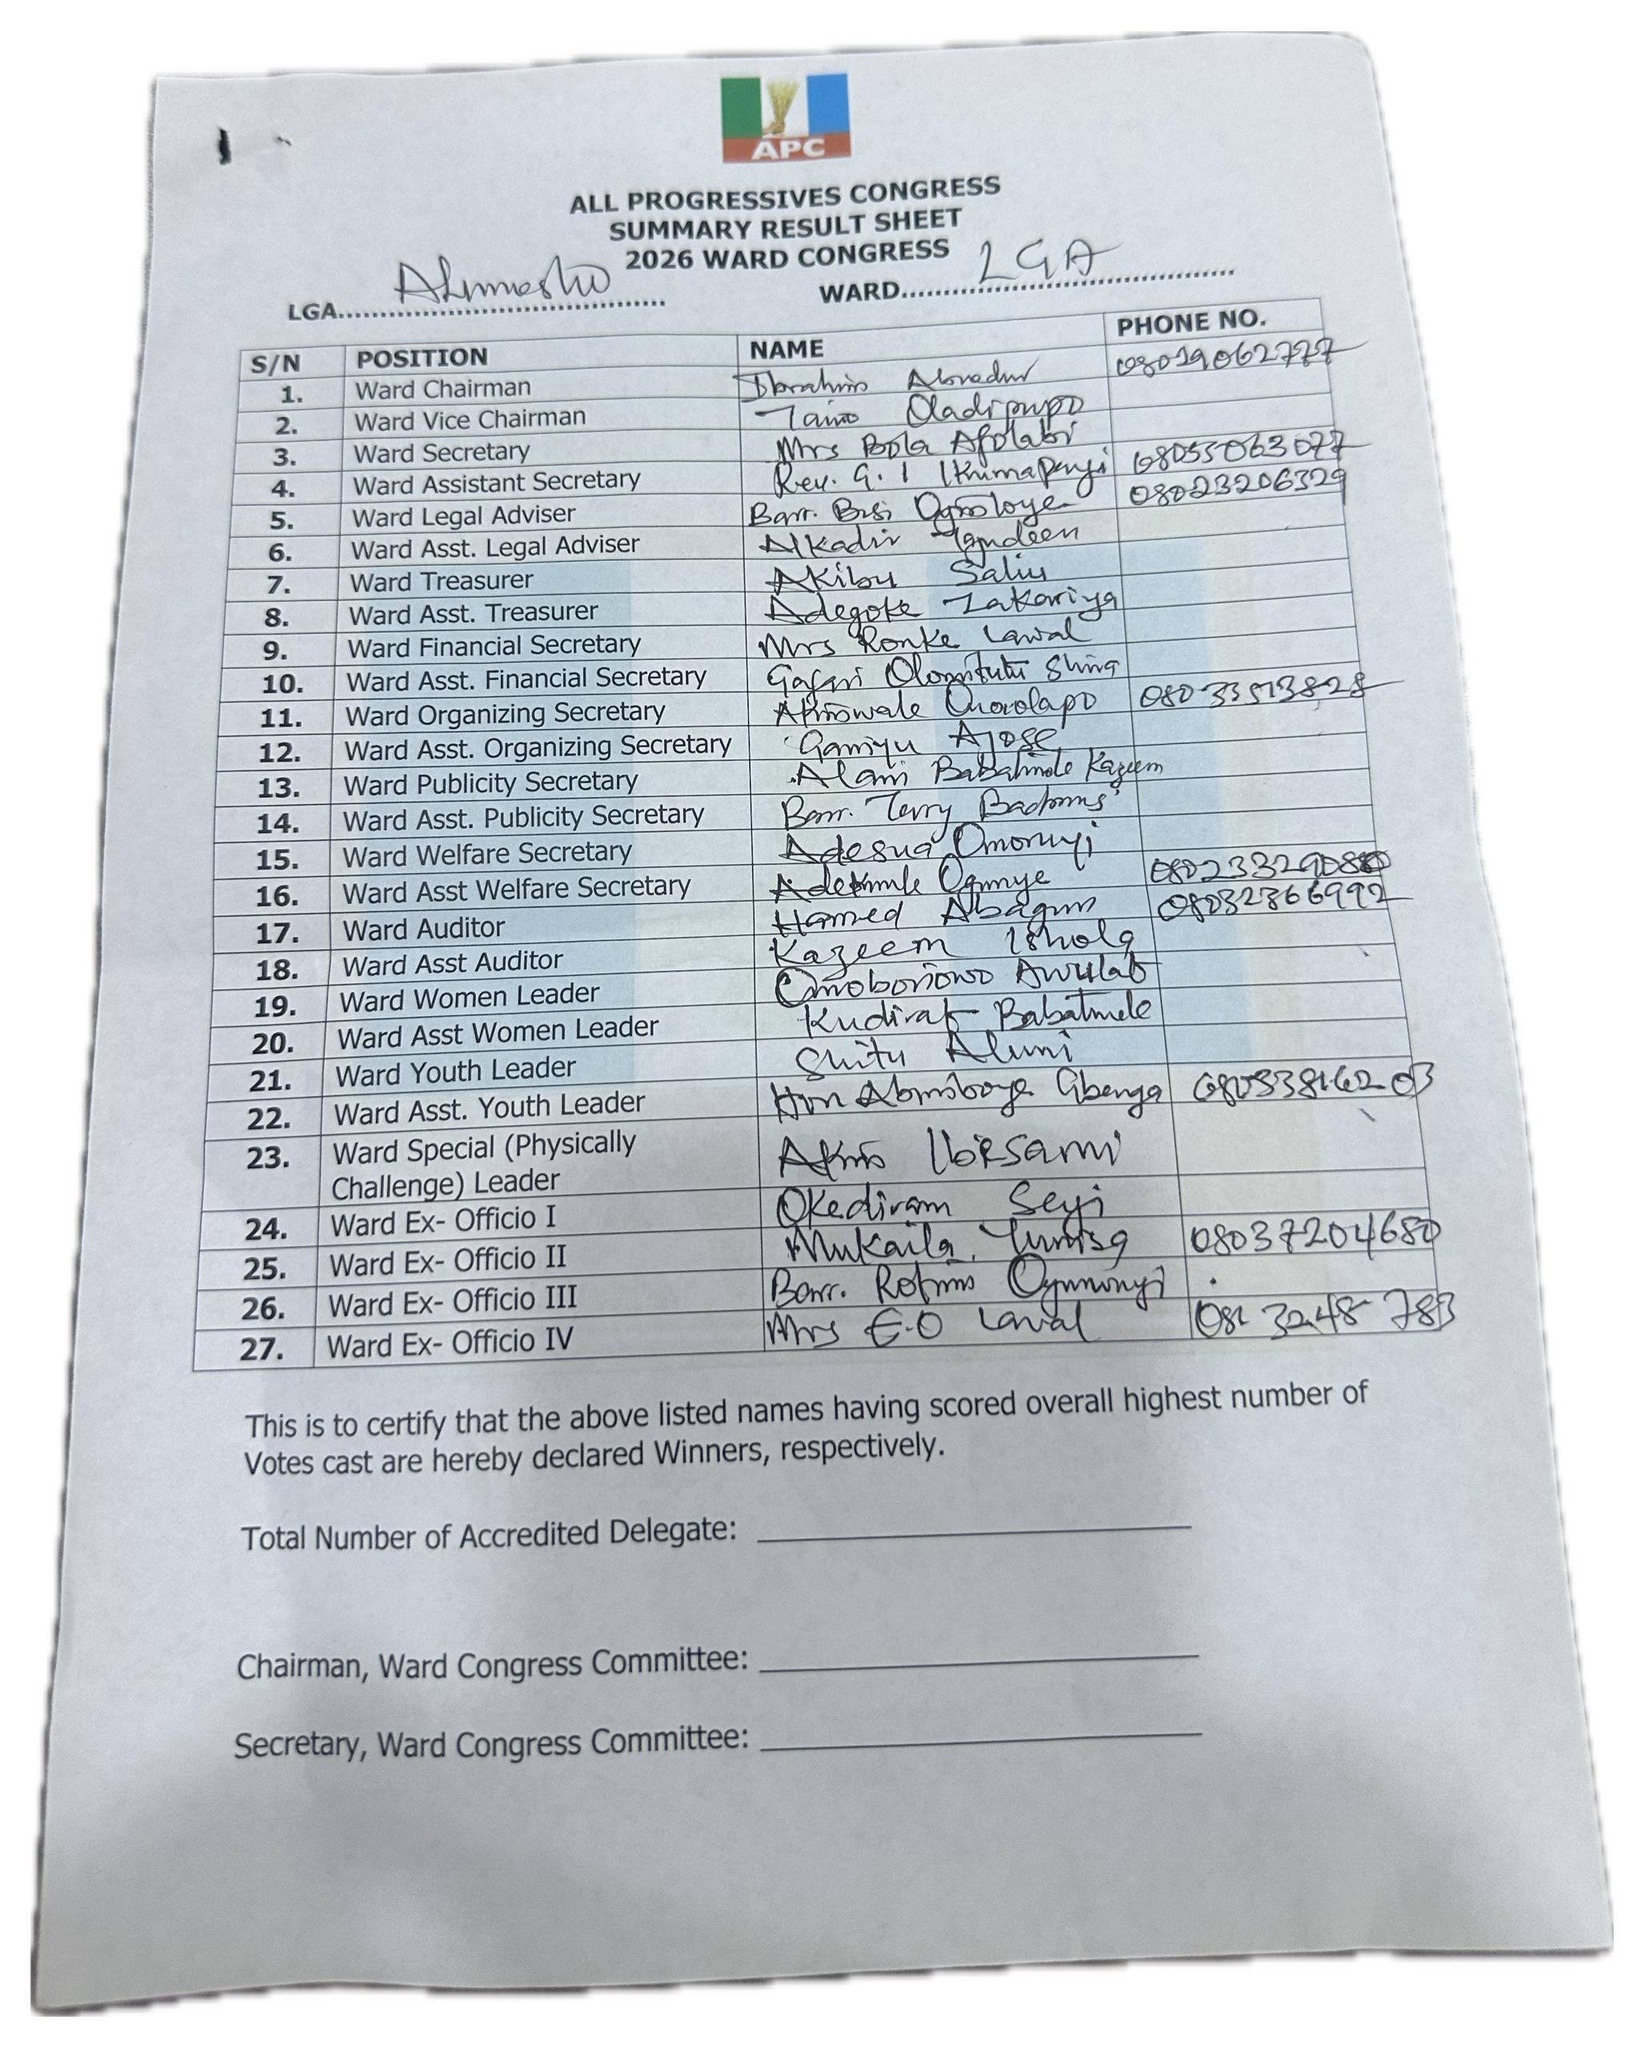 APC
ALL PROGRESSIVES CONGRESS
SUMMARY RESULT SHEET
2026 WARD CONGRESS
LGA.......... Alimosho WARD.......... LGA
S/N POSITION NAME PHONE NO.
1. Ward Chairman Ibrahim 08019062777
2. Ward Vice Chairman Taiwo Oladipupo
3. Ward Secretary Mrs Bola Afolabi
4. Ward Assistant Secretary Rev. G. I Ikhimapenyi 08055063077
5. Ward Legal Adviser Barr. Bisi Ogunloye 08023206329
6. Ward Asst. Legal Adviser Alkadir Tajudeen
7. Ward Treasurer Akibu Saliu
8. Ward Asst. Treasurer Adegoke Zakariya
9. Ward Financial Secretary Mrs Ronke Lawal
10. Ward Asst. Financial Secretary Gafari Ologuntutu Shina
11. Ward Organizing Secretary Akinwale Omololapo 08033513828
12. Ward Asst. Organizing Secretary Ganiyu Ajose
13. Ward Publicity Secretary Alani Babatunde Kazeem
14. Ward Asst. Publicity Secretary Barr. Terry Badmus
15. Ward Welfare Secretary Adesua Omoruyi
16. Ward Asst Welfare Secretary Adekunle Ogunye
17. Ward Auditor Hamed Abagun 08032366992
18. Ward Asst Auditor Kazeem Ishola
19. Ward Women Leader Omoboriowo Awulat
20. Ward Asst Women Leader Kudirat Babatunde
21. Ward Youth Leader Shitu Alimi
22. Ward Asst. Youth Leader Hon Abimboye Gbenga 08033816203
23. Ward Special (Physically
Challenge) Leader Akin Ibisanmi
24. Ward Ex- Officio I Okediram Seyi
25. Ward Ex- Officio II Mukaila Yunisa 08037204680
26. Ward Ex- Officio III Barr. Rotimi Ogunmoyi
27. Ward Ex- Officio IV Mrs E.O Lawal
This is to certify that the above listed names having scored overall highest number of
Votes cast are hereby declared Winners, respectively.
Total Number of Accredited Delegate:
Chairman, Ward Congress Committee:
Secretary, Ward Congress Committee: